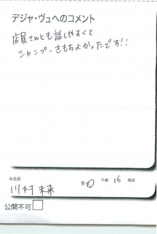 デジャ・ヴュへのコメント
店員さんとも話しやすくて
シャンプーきもちよかったです!!
お名前
川村 未来
男 ○ 年齢 16 職業
公開不可 □